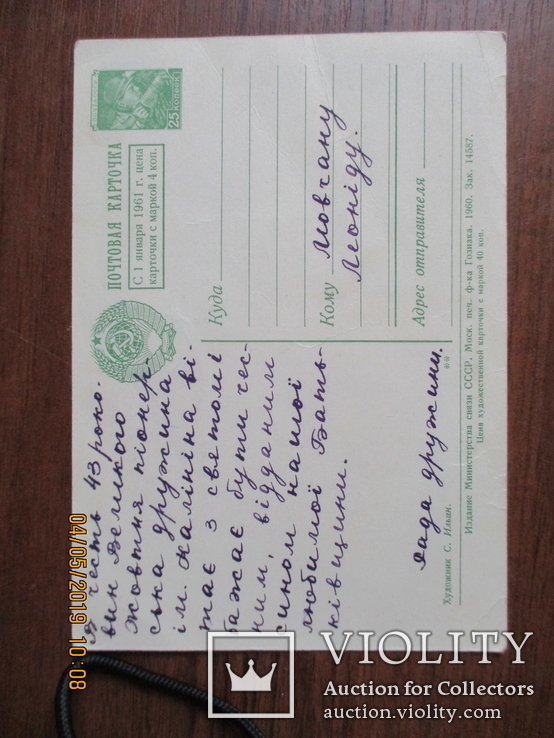 ПОЧТОВАЯ КАРТОЧКА
С 1 января 1961 г. цена
карточки с маркой 4 коп.
25 КОПЕЕК
В честь 43 роко-
вин Великого
Жовтня піонер-
ська дружина
ім. Калініна ві-
тає з святом і
бажає бути чес-
ним, відданим
сином нашої
любимої Бать-
ківщини.
Рада дружини.
Куда
Кому Мовчану
Леоніду.
Адрес отправителя
Художник С. Ильин.
Издание Министерства связи СССР. Моск. печ. ф-ка Гознака. 1960. Зак. 14587.
Цена художественной карточки с маркой 40 коп.
04/05/2019 10:08
VIOLITY
Auction for Collectors
auction.violity.com